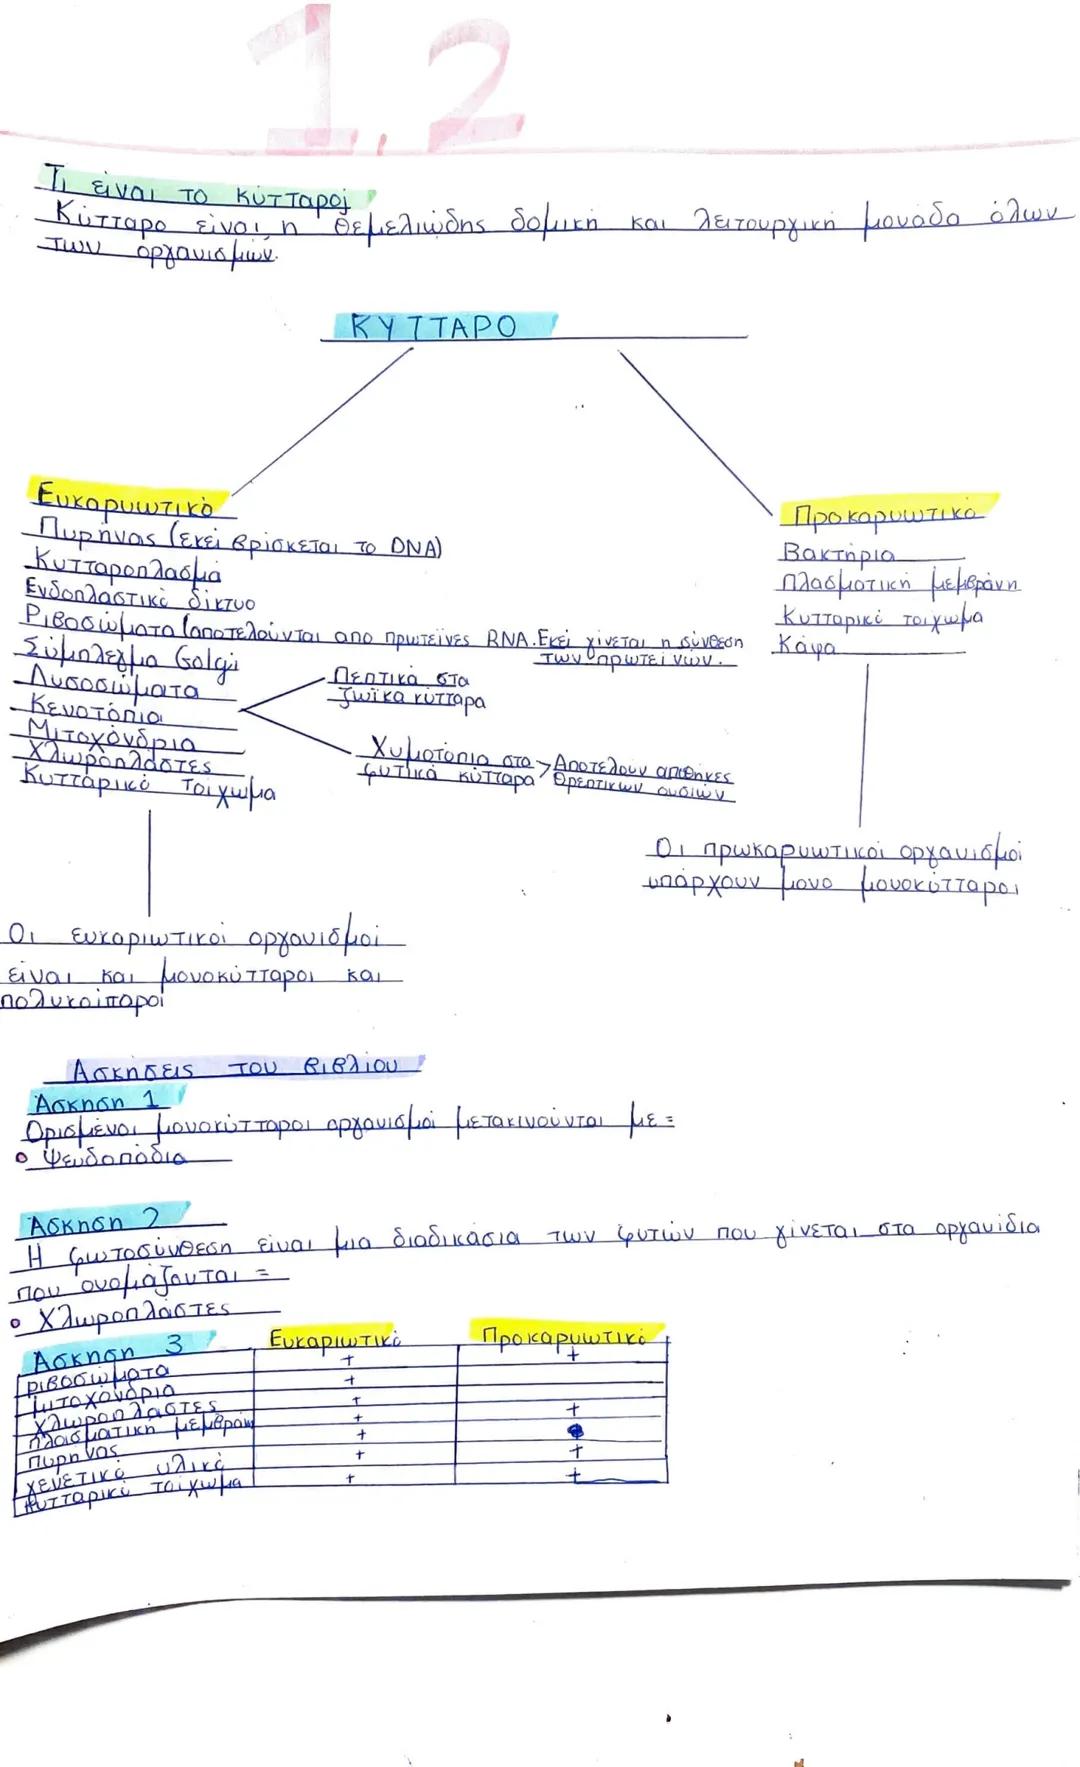 1,2
Τι είναι το κύτταρο;
Κύτταρο είναι η θεμελιώδης δομική και λειτουργική μονάδα όλων
των οργανισμών.
ΚΥΤΤΑΡΟ
Ευκαρυωτικό
Πυρήνας (εκεί βρίσκεται το DNA)
Κυτταροπλασμά
Ενδοπλαστικό δίκτυο
Ριβοσώματα (αποτελούνται απο πρωτεϊνες RNA. Εκεί γίνεται η σύνθεση
των πρωτεϊνών.
Σύμπλεγμα Golgi
Λυσοσώματα
Κενοτόπια
Μιτοχόνδρια
Χλωροπλάστες
Κυττάρικό τοίχωμα
Πεπτικά στα
ζωϊκα κύτταρα
Χυμοτόπια στα
φυτικά κύτταρα
Αποτελούν αποθήκες
θρεπτικων ουσιών
Προκαρυωτικό
Βακτήρια
Πλασματική μεμβράνη
Κυτταρικό τοιχωμα
Κάψα
Οι πρωκαρυωτικοί οργανισμοί
υπάρχουν μονο μονοκύτταροι
Οι ευκαριωτικοί οργανισμοί
είναι και μονοκύτταροι και
πολυκαίταροί
Ασκήσεις του βιβλίου
Άσκηση 1
Ορισμένοι μονοκύτταροι οργανισμοί μετακινούνται με =
• Ψευδοπόδια
Άσκηση 2
Η φωτοσύνθεση είναι μια διαδικάσια των φυτών που γίνεται στα οργανίδια
που ονομάζονται =
• Χλωροπλάστες
Άσκηση 3 Ευκαριωτικό Προκαρυωτικό
ριβοσώματα + +
μιτοχόνδρια +
χλωροπλάστες +
πλασματική μεμβράνη + +
πυρήνας +
γενετικό υλικό + +
κυτταρικό τοίχωμα + +